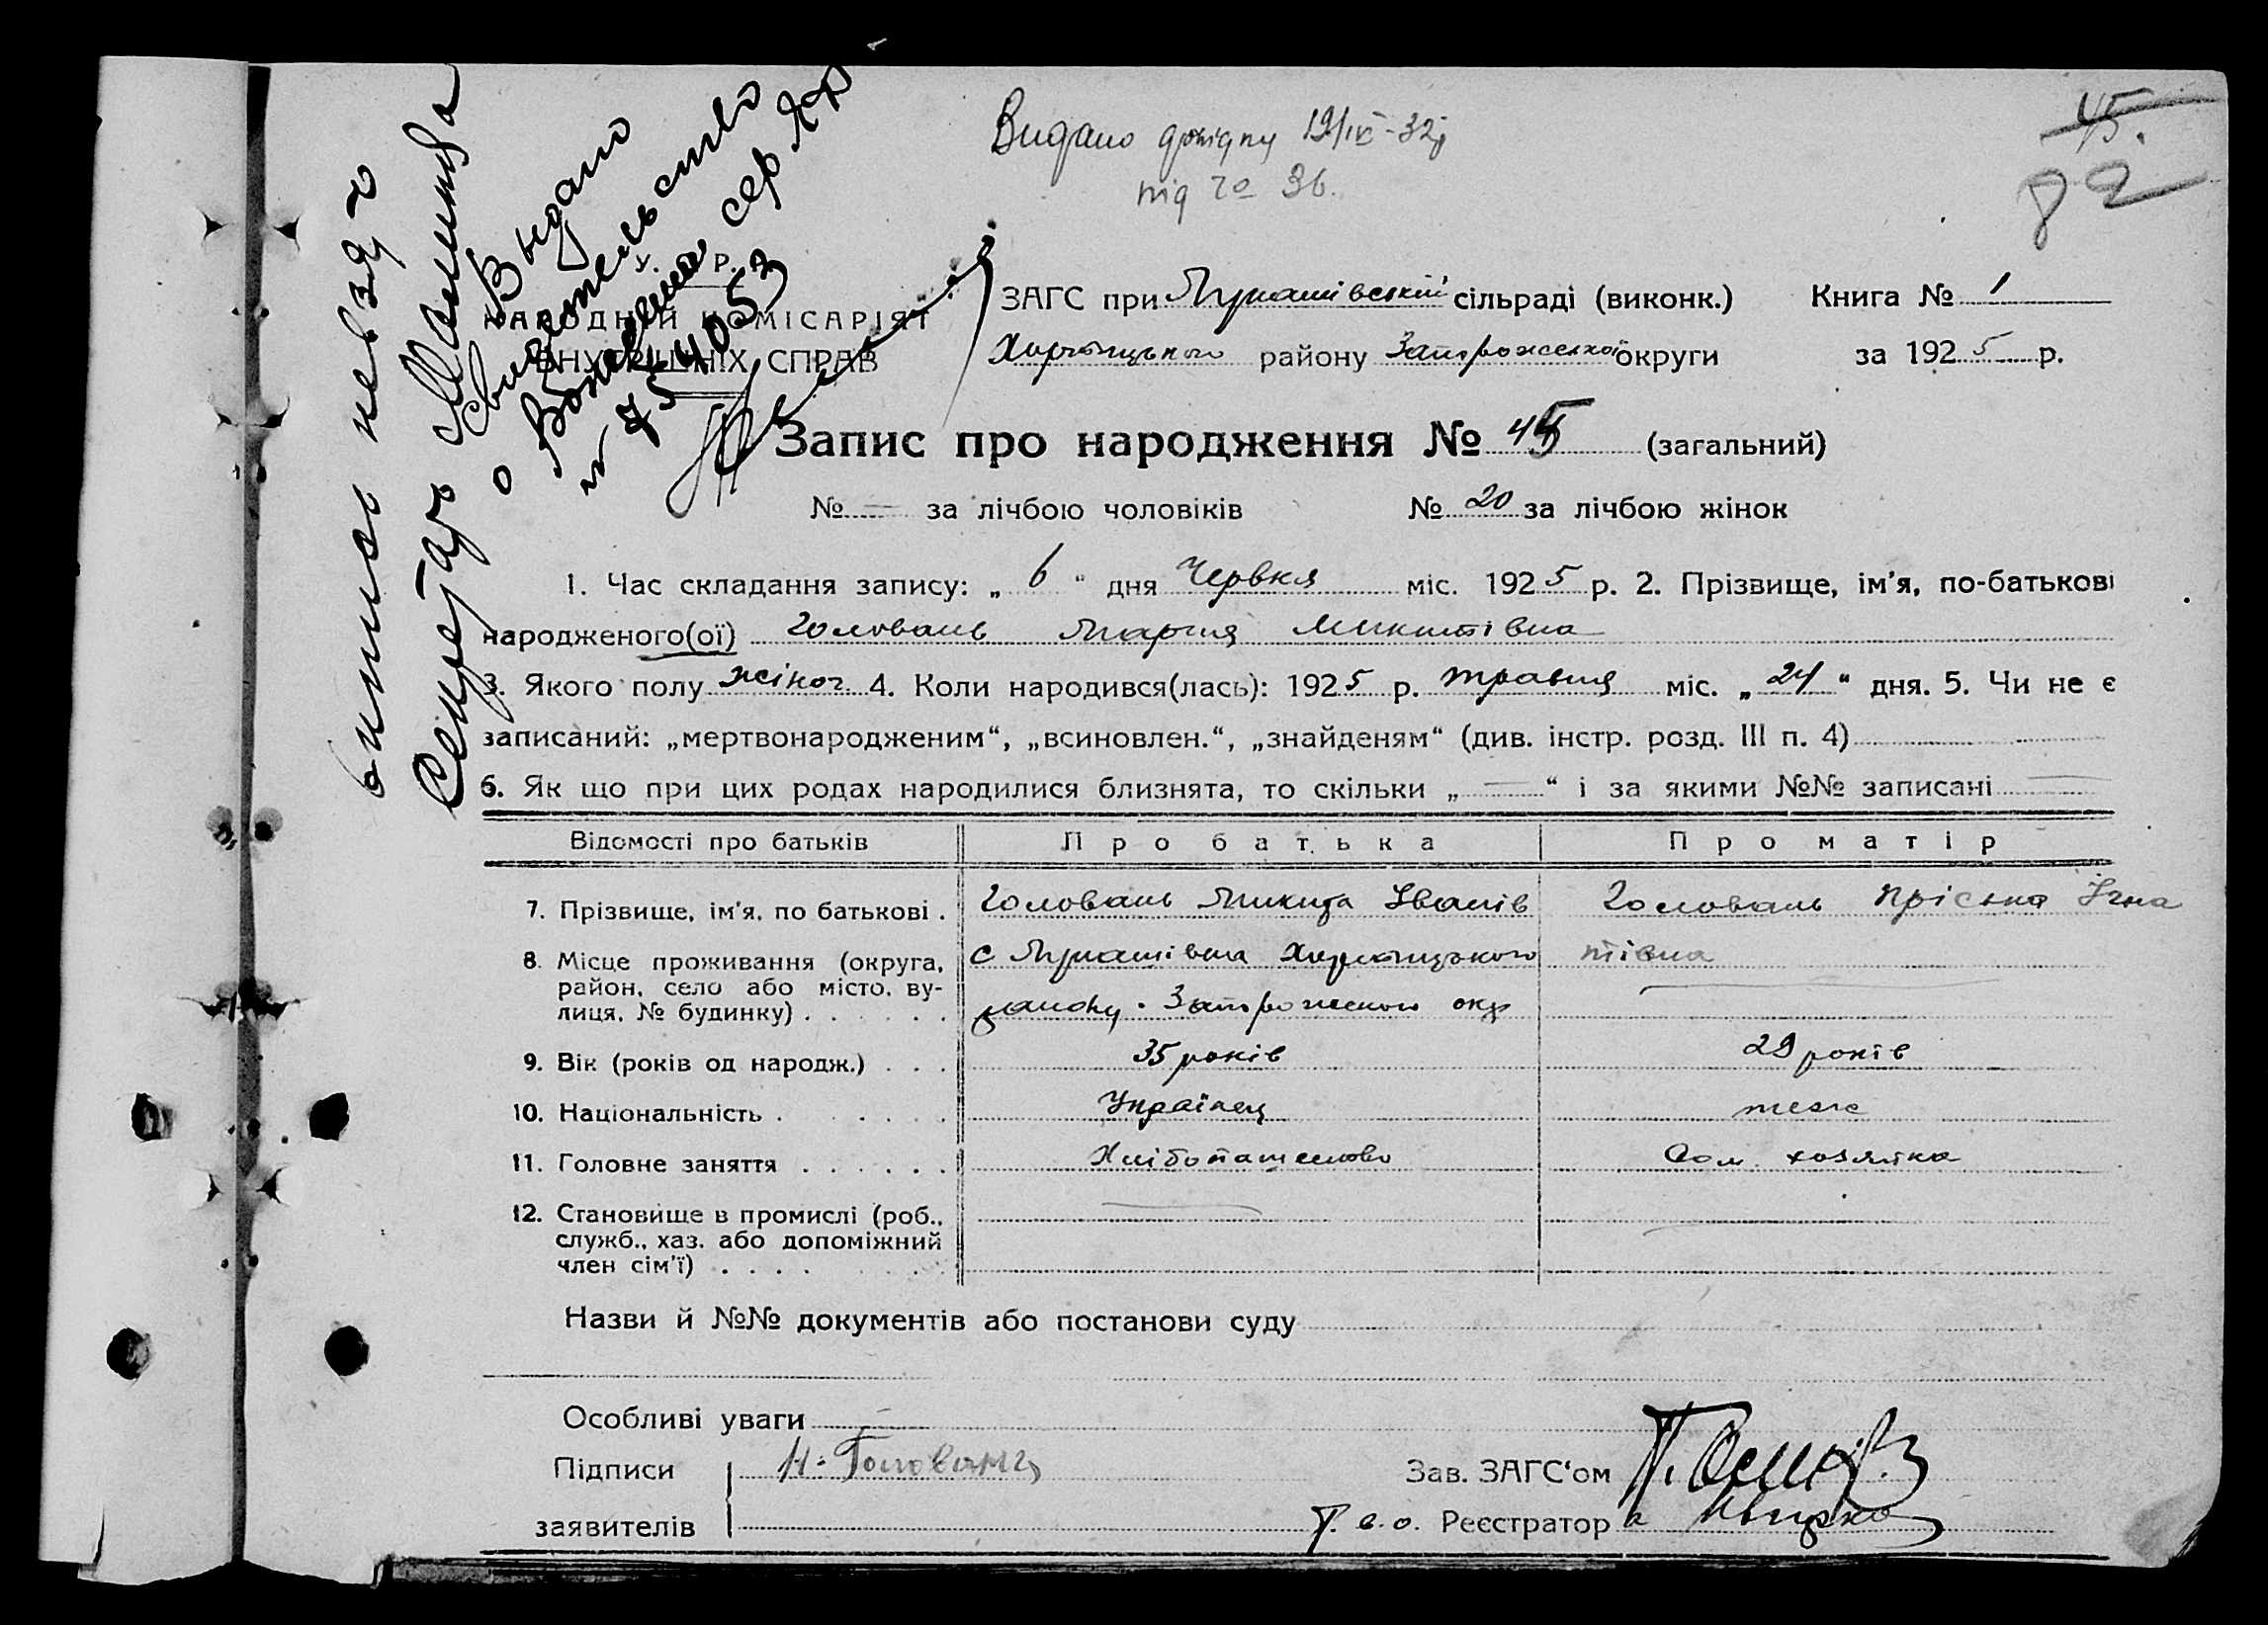 45.
82
Видано довідку 19/IX-32р
під № 36.
Выдано
свидетельство
о рождении сер ЯФ
№ 754053
Секретарь
У. Р.
НАРОДНІЙ КОМІСАРІЯТ
ВНУТРІШНІХ СПРАВ
ЗАГС при Лукашівській сільраді (виконк.) Книга № 1
Хортицького району Запорожської округи за 1925 р.
Запис про народження № 45 (загальний)
№ — за лічбою чоловіків № 20 за лічбою жінок
1. Час складання запису: „ 6 “ дня Червня міс. 1925 р. 2. Прізвище, ім’я, по-батькові
народженого(ої) Головань Мария Микитівна
3. Якого полу жіноч. 4. Коли народився(лась): 1925 р. травня міс. „ 24 “ дня. 5. Чи не є
записаний: „мертвонародженим“, „всиновлен.“, „знайденям“ (див. інстр. розд. III п. 4)
6. Як що при цих родах народилися близнята, то скільки „ — “ і за якими №№ записані —
Відомості про батьків Про батька Про матір
7. Прізвище, ім’я, по батькові . Головань Микита Іванів Головань Пріська Ігна
8. Місце проживання (округа, с Лукашівка Хортицького тівна
район, село або місто, ву-
лиця, № будинку) . . . . . . району. Запорожского окр
9. Вік (років од народж.) . . . 35 років 29 років
10. Національність . . . . . Українец теж
11. Головне заняття . . . . . . Хлібопашенство Дом. хозяйка
12. Становище в промислі (роб.. — —
служб., хаз. або допоміжний
член сім’ї) . . . .
Назви й №№ документів або постанови суду
Особливі уваги —
Підписи Н. Головань
Зав. ЗАГС‘ом
заявителів Т. в. о. Реєстратор а